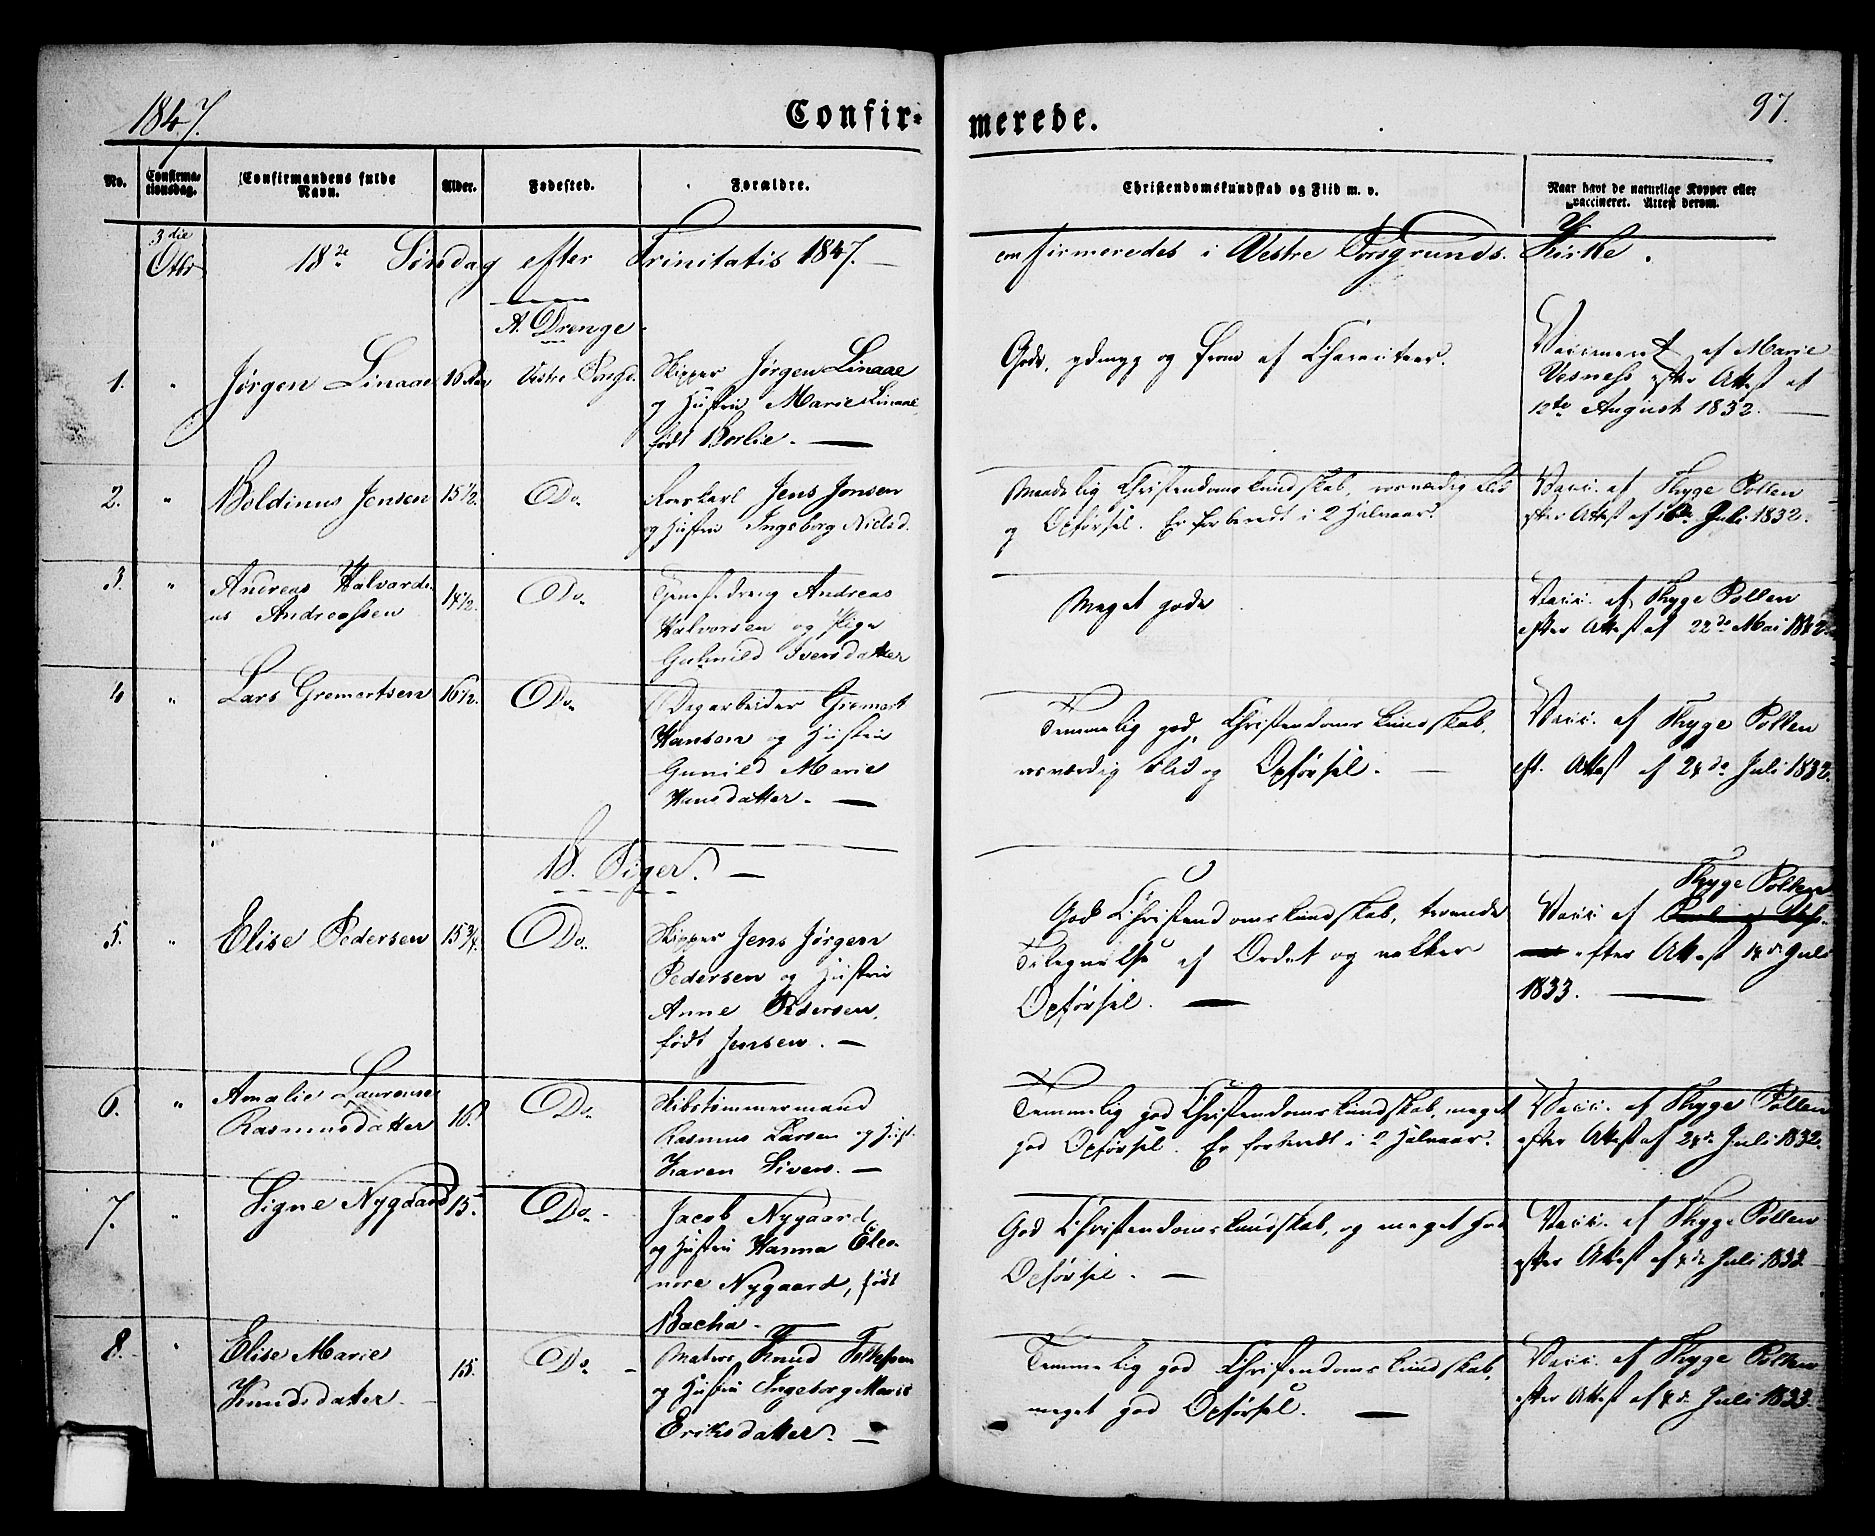 1847.
Confir-
merede.
97.
No.
Confirma-
tionsdag.
Confirmandens fulde
Navn.
Alder.
Fødested.
Forældre.
Christendomskundskab og Flid m. v.
Naar havt de naturlige Kopper eller
vaccineret. Attest derom.
3die
Octbr
18de Søndag efter Trinitatis 1847. —
confirmeredes i Vestre Porsgrunds Kirke.
A. Drenge
1. " Jørgen Linaae 16 Aar Vestre Porsgd. Skipper Jørgen Linaae
og Hustru Marie Linaae,
født Borlie. —
Gode, ydmyg og from af Characteer.
Vaccineret af Marie
Vesness efter Attest af
12te August 1832. —
2. " Boldinus Jensen 15 1/2 Do. Jens Jensen
og Hustru Ingeborg Nielsd.
Maadelig Christendomskundskab, roesværdig Flid
og Opførsel. Er forberedt i 2 Halvaar.
Vacc. af Thyge Polken
efter Attest af Juli 1832.
3. " Andreas Halvardi-
us Andreassen 14 1/2. Do. Andreas
Halvorsen og Pige
Gulnild Iversdatter
Meget gode
Vacc. af Thyge Polken
efter Attest af 22de Mai
4 " Lars Gremertsen 16 1/2. Do. Dagarbeider Gremert
Hansen og Hustru
Gunild Marie
Hansdatter. —
Temmelig god Christendomskundskab,
roesværdig Flid og Opførsel. —
Vacc. af Thyge Polken
eft. Attest af 24de Juli 1832.
B. Piger. —
5. " Elise Pedersen 15 3/4. Do. Skipper Jens Jørgen
Pedersen og Hustru
Anne Pedersen,
født Jensen. —
God Christendomskundskab, troende
Tilegnelse af Ordet og vakker
Opførsel. —
Thyge Polken
Vacc af
efter Attest Juli
1833. —
6. " Amalie Laurense
Rasmusdatter 16. Do. Skibstømmermand
Rasmus Larsen og Hust.
Karen Sivers. —
Temmelig god Christendomskundskab, meget
god Opførsel. Er forberedt i 2 Halvaar.
Vacc. af Thyge Polken
efter Attest af 24de Juli 1832.
7. " Signe Nygaard 15. Do. Jacob Nygaard
og Hustru Hanna Eleo-
nore Nygaard, født
Bacha. —
God Christendomskundskab, og meget god
Opførsel. —
Vacc. af Thyge Polken
efter Attest af 4de Juli 1833.
8. " Elise Marie
Knudsdatter. 15. Do. Matros Knud Tollefsen
og Hustru Ingeborg Marie
Eriksdatter. —
Temmelig god Christendomskundskab,
meget god Opførsel. —
Vacc. af Thyge Polken
efter Attest af 4de Juli 1833.